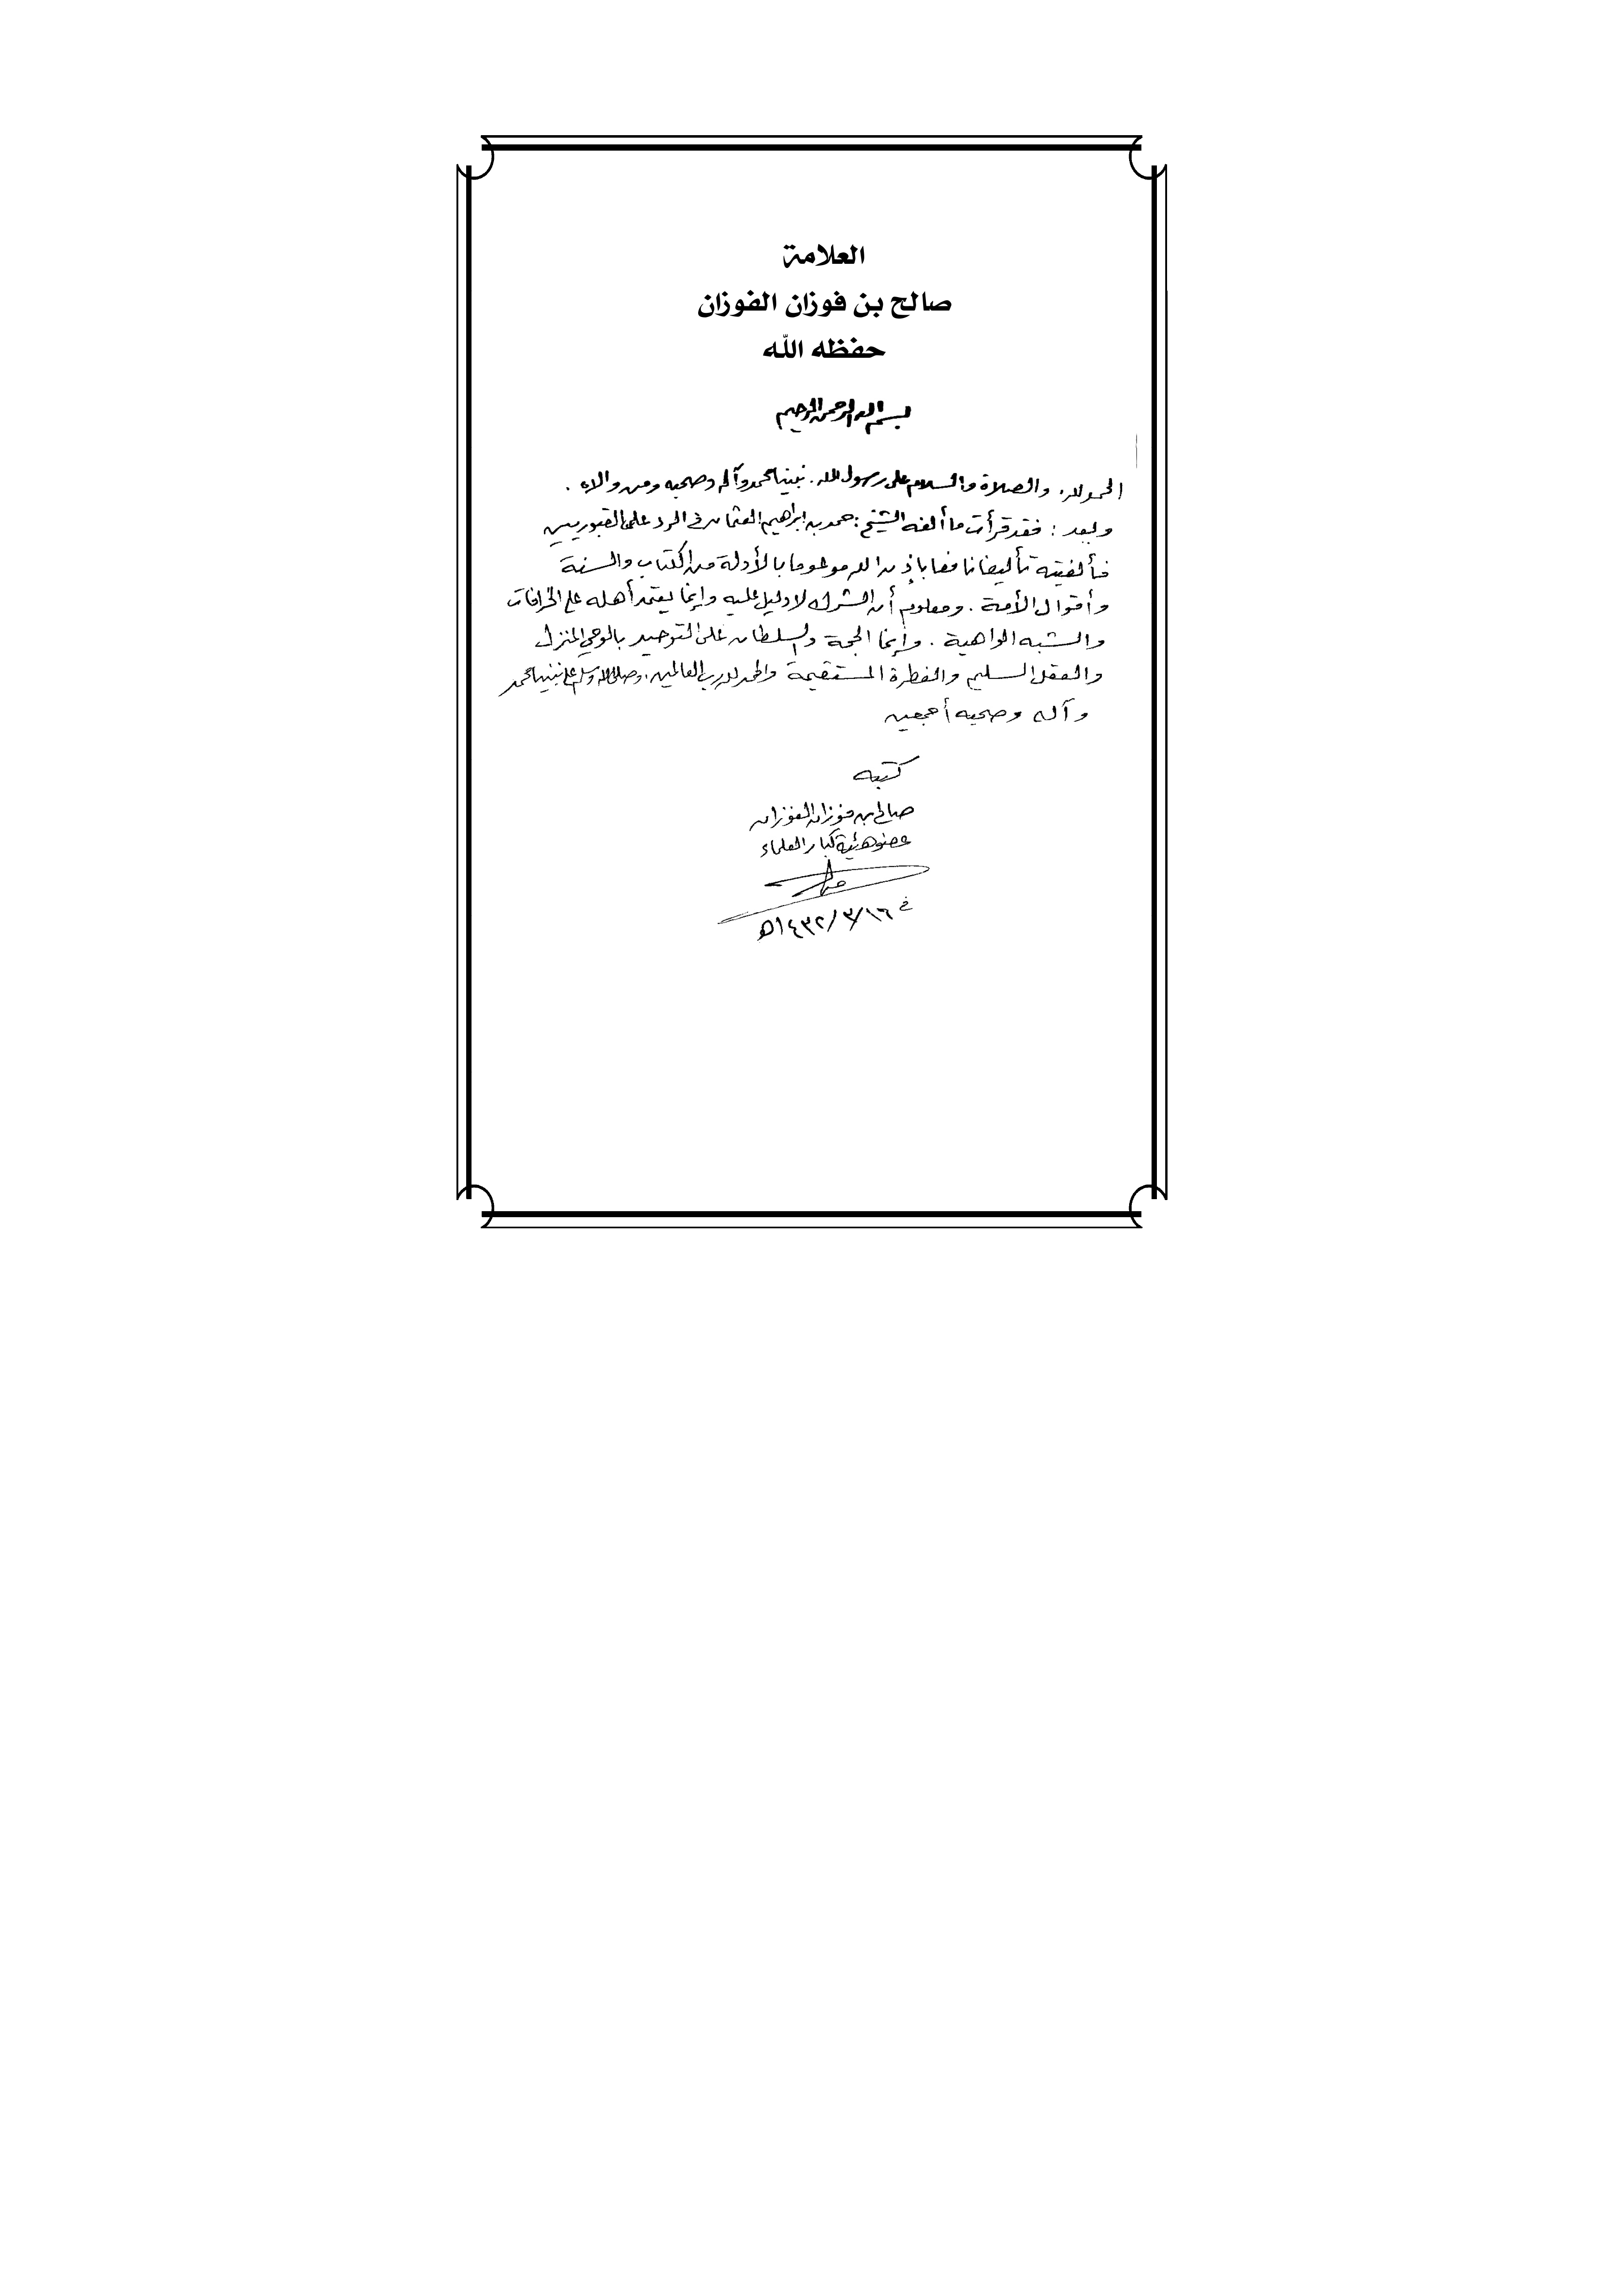 العلامة
صالح بن فوزان الفوزان
حفظه الله
بسم الله الرحمن الرحيم
الحمد لله. والصلاة والسلام على رسول الله. نبينا محمد وآله وصحبه ومن والاه.
وبعد: فقد قرأت ما ألفه الشيخ: حمد بن إبراهيم العثمان في الرد على القبوريين
فألفيته تأليفا نافعا بإذن الله مدعوما بالأدلة من الكتاب والسنة
وأقوال الأئمة. ومعلوم أن الشرك لا دليل عليه وإنما يعتمد أهله على الخرافات
والشبه الواهية. وإنما الحجة والسلطان على التوحيد بالوحي المنزل
والعقل السليم والفطرة المستقيمة والحمد لله رب العالمين. وصلى الله وسلم على نبينا محمد
وآله وصحبه أجمعين
كتبه
صالح بن فوزان الفوزان
عضو هيئة كبار العلماء
في ١٤٣٢/٣/١٦هـ